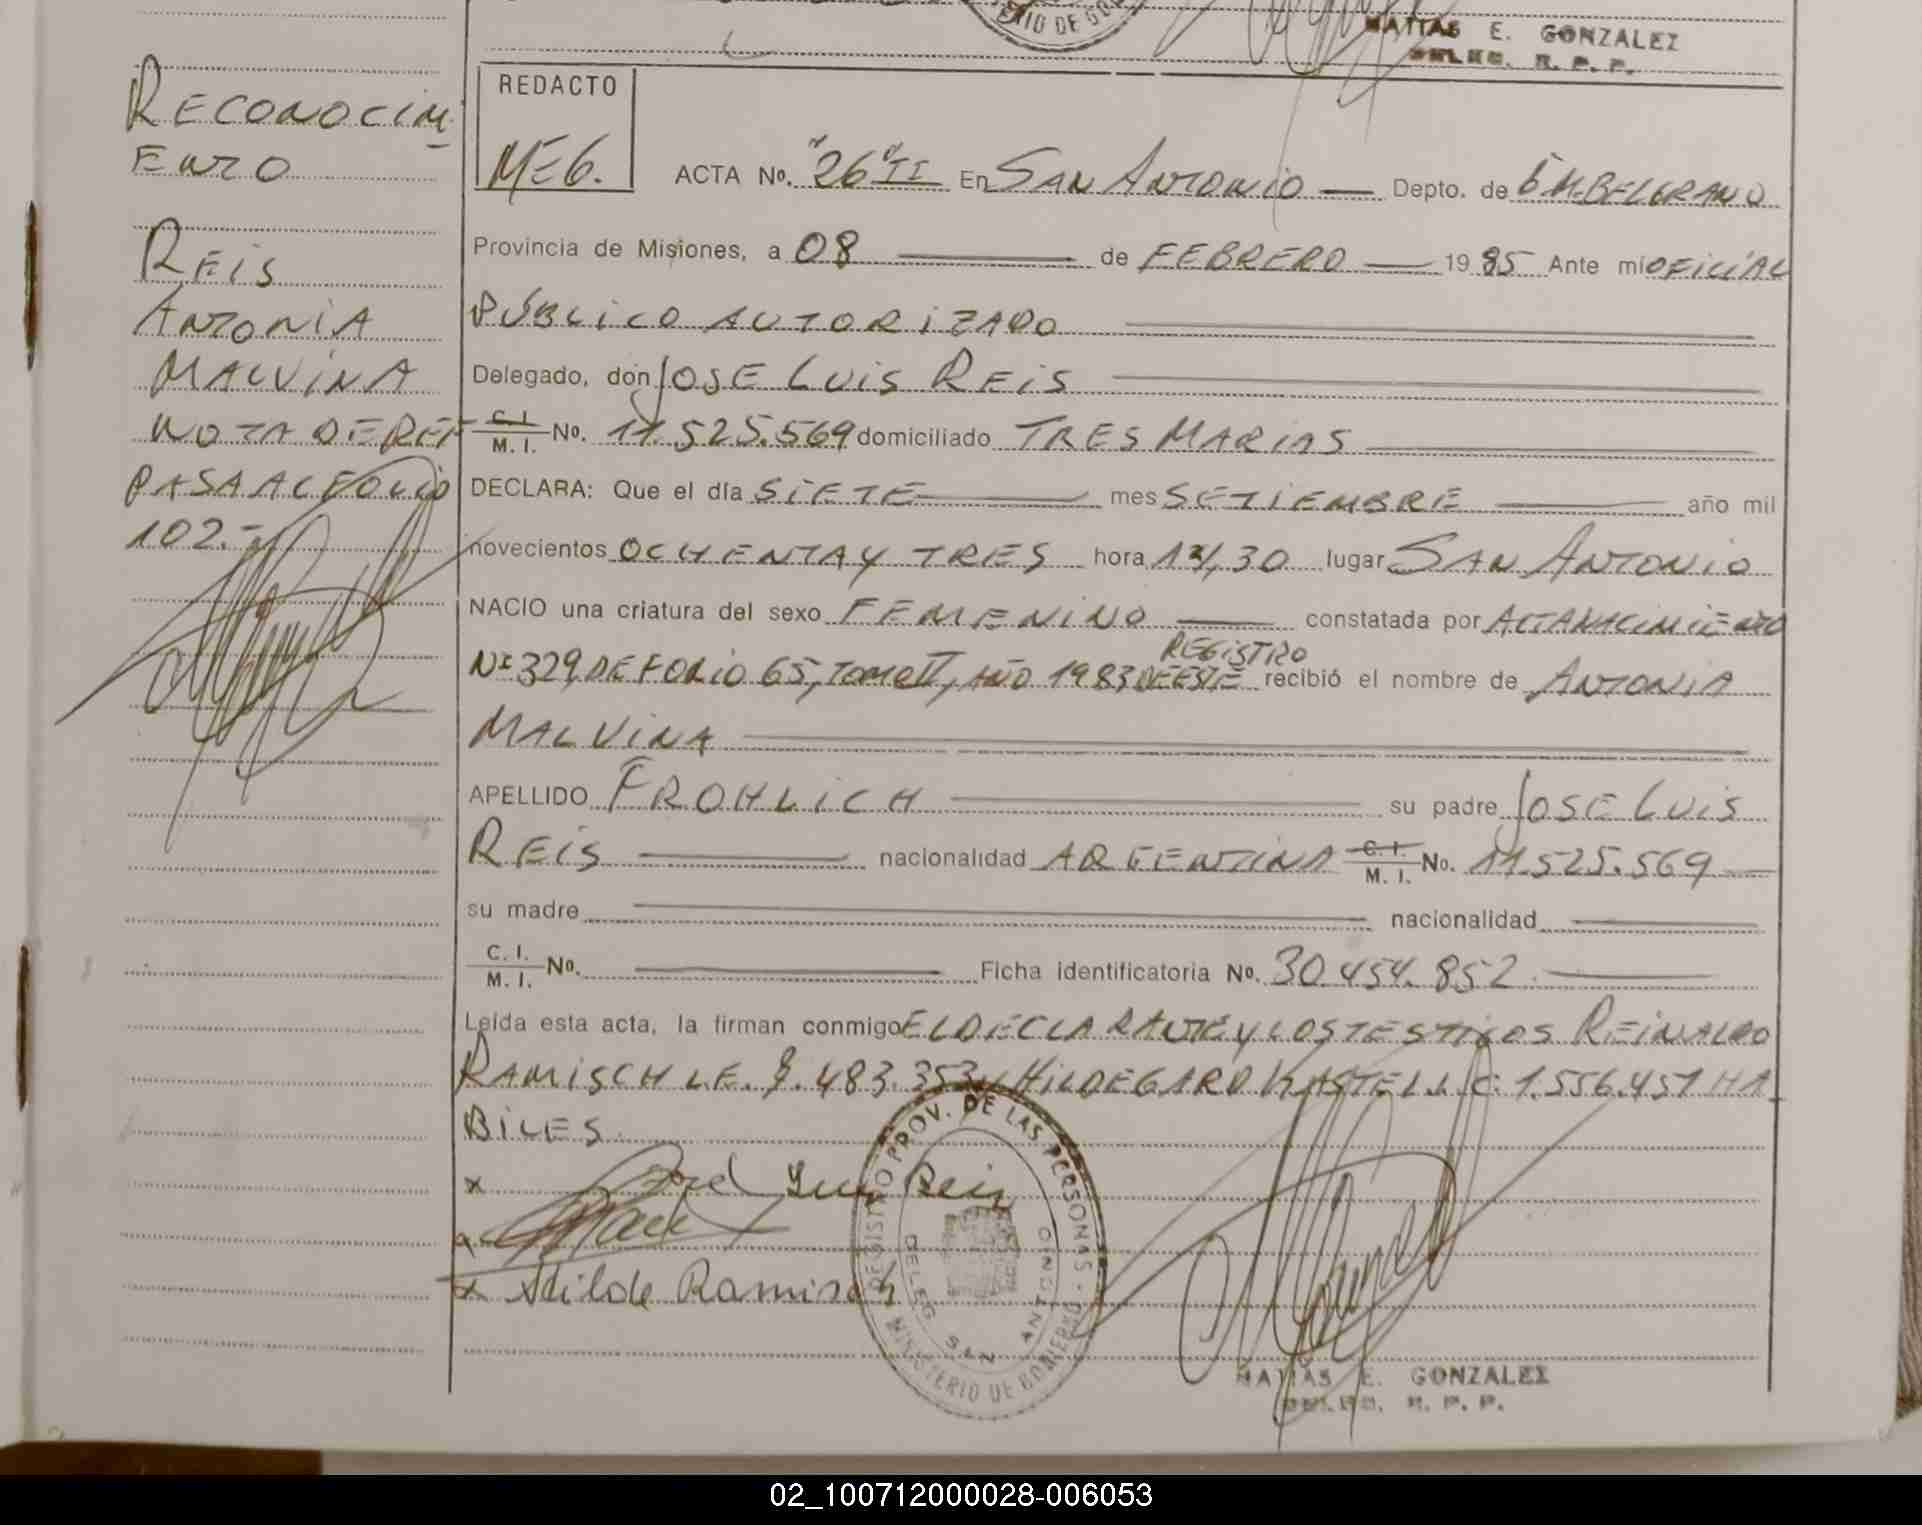 MINISTERIO DE GO
MATIAS E. GONZALEZ
DELEG. R. P. P.
RECONOCIM
IENTO
REIS
ANTONIA
MALVINA
NOTA DE REF
PASA AL FOLIO
102.-
REDACTO
MEG.
ACTA No. "26" II En SAN ANTONIO Depto. de G M. BELGRANO
Provincia de Misiones, a 08 de FEBRERO 1985 Ante mi OFICIAL
PÚBLICO AUTORIZADO
Delegado, don JOSE LUIS REIS
C. I. M. I. No. 11.525.569 domiciliado TRES MARIAS
DECLARA: Que el día SIETE mes SETIEMBRE año mil
novecientos OCHENTA Y TRES hora 14,30 lugar SAN ANTONIO
NACIO una criatura del sexo FEMENINO constatada por ACTA NACIMIENTO
REGISTRO
Nº 329, DE FOLIO 65, TOMO II, AÑO 1983, DE ESTE recibió el nombre de ANTONIA
MALVINA
APELLIDO FROHLICH su padre JOSE LUIS
REIS nacionalidad ARGENTINA C. I. M. I. No. 11.525.569
su madre nacionalidad
C. I. M. I. No. Ficha identificatoria No. 30.454.852.
Leída esta acta, la firman conmigo EL DECLARANTE Y LOS TESTIGOS REINALDO
RAMISCH L.E. 8.483.353 y HILDEGARD KASTELL L.C. 1.556.451 HA
BILES.
x José Luis Reis
x Hilde Ramisch
REGISTRO PROV. DE LAS PERSONAS - MINISTERIO DE GOBIERNO
DELEG. SAN ANTONIO
MATIAS E. GONZALEZ
DELEG. R. P. P.
02_100712000028-006053